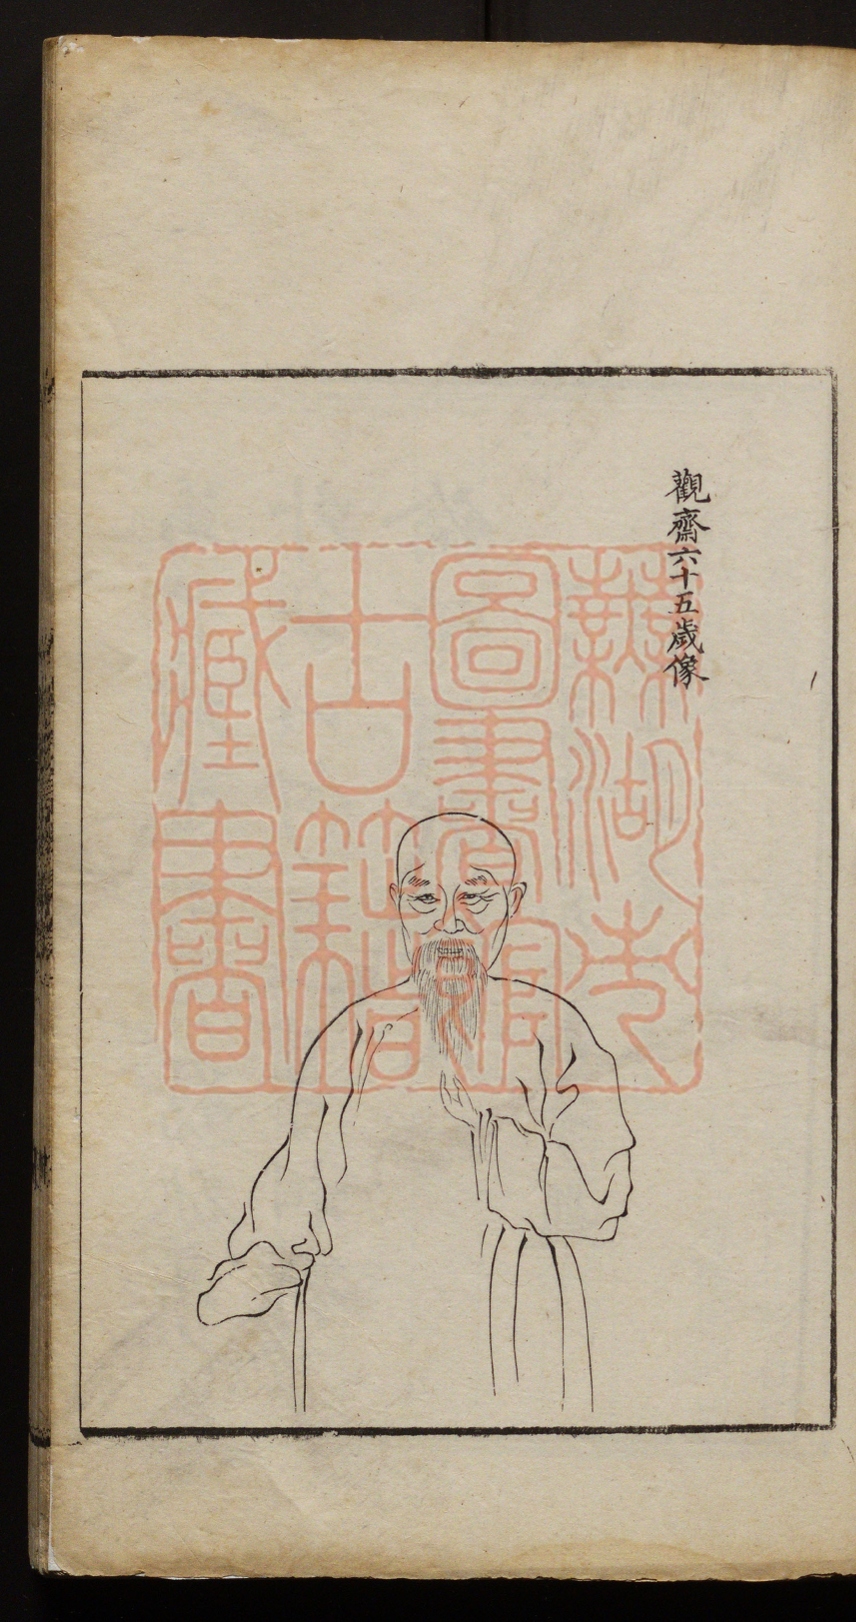 觀齋六十五歲像
蕪湖市
圖書館
古籍
藏書